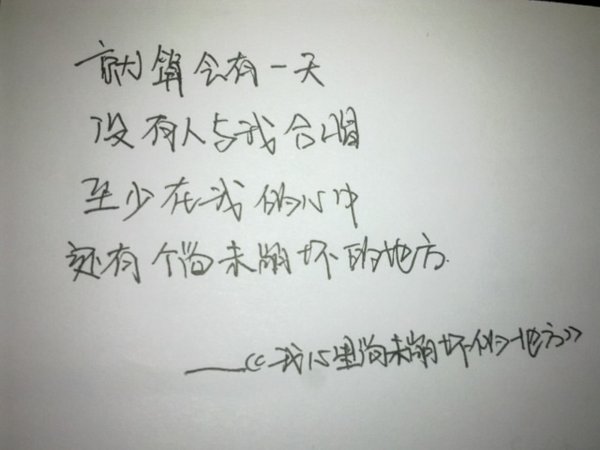 就算会有一天
没有人与我合唱
至少在我的心中
还有个尚未崩坏的地方
——《我心里尚未崩坏的地方》